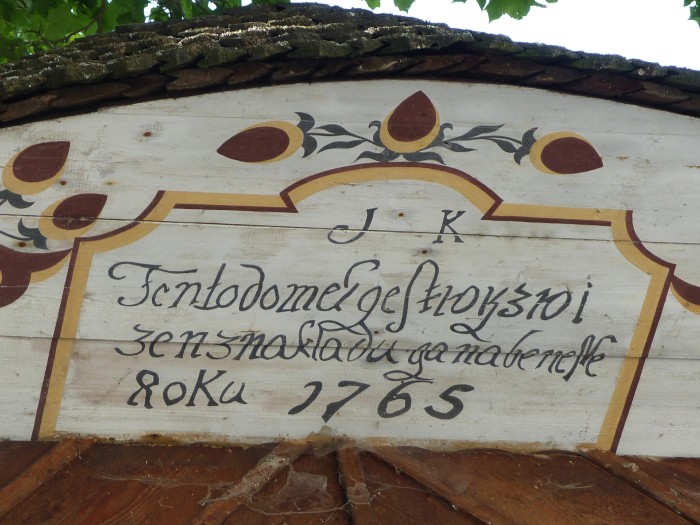 J K
Tentodomek gest wyzwi
zenznakladu gana benesse
Roku 1765